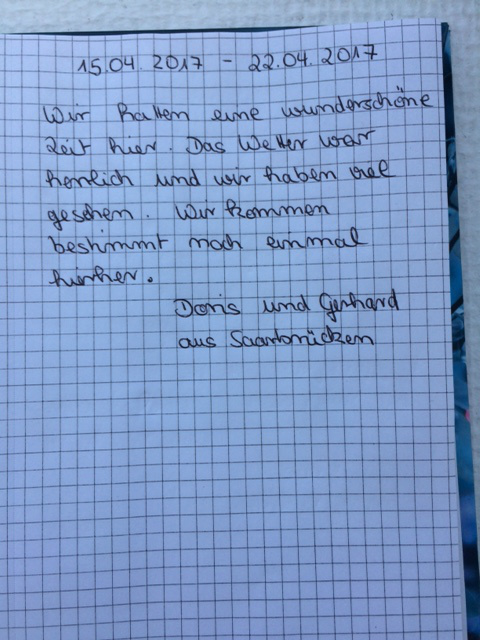 15.04.2017 - 22.04.2017
Wir hatten eine wunderschöne
Zeit hier. Das Wetter war
herrlich und wir haben viel
gesehen. Wir kommen
bestimmt noch einmal
hierher.
Doris und Gerhard
aus Saarbrücken